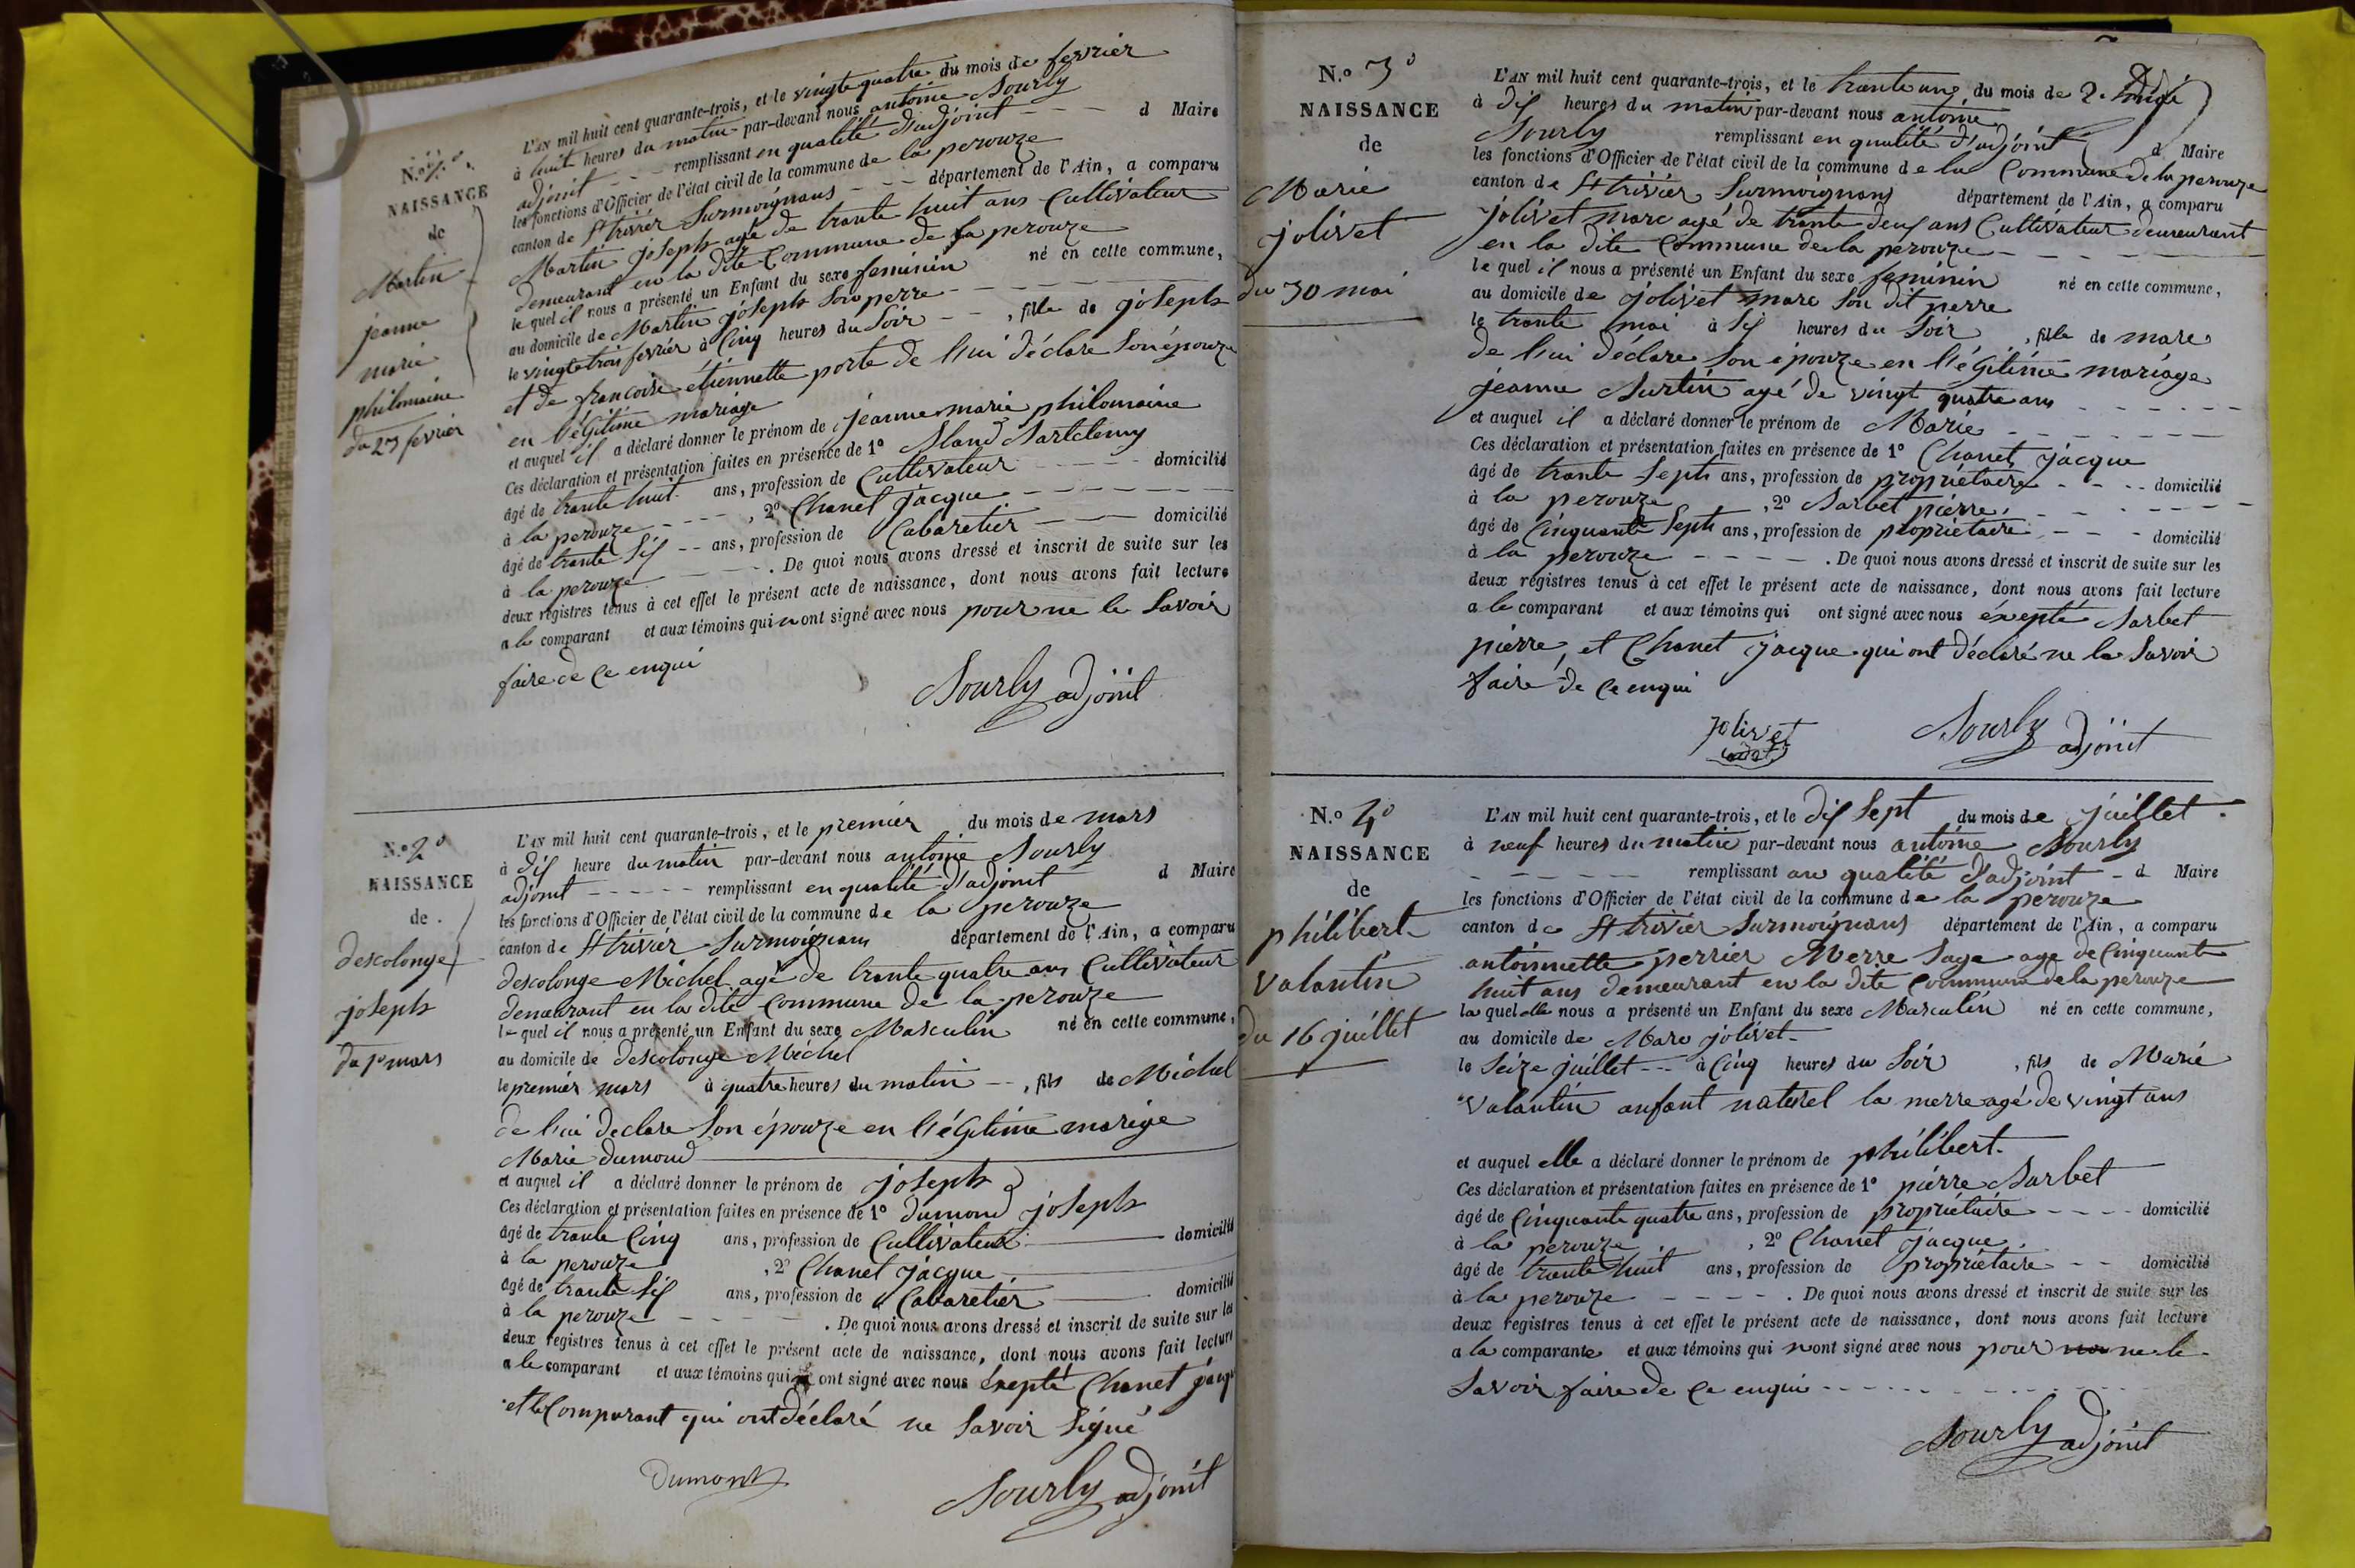 N.º 1º
NAISSANCE
de
Martin
jeanne
marie
philomaine
du 23 fevrier
L'AN mil huit cent quarante-trois, et le vingtequatre du mois de fevrier
à huit heures du matin par-devant nous antoine Sourly
adjoint - - - remplissant en qualité d'adjoint - - - d Maire
les fonctions d'Officier de l'état civil de la commune de la perouze
canton de St trivier Surmoignans - - - département de l'Ain, a comparu
Martin joseph agé de trante huit ans Cultivateur
demeurant en la dite Commune de la perouze
le quel il nous a présenté un Enfant du sexe feminin né en cette commune,
au domicile de Martin joseph Son perre - - -
le vingtetrois fevrier à Cinq heures du Soir - - , fille de joseph
et de francoise étiennette porte de l'iui déclare Son épouze
en l'égitime mariage
et auquel il a déclaré donner le prénom de jeanne marie philomaine
Ces déclaration et présentation faites en présence de 1º
âgé de trante huit ans, profession de Cultivateur - - - domicilié
à la perouze - - - , 2º Chanet jacque - - -
âgé de trante Sis - - ans, profession de Cabaretier - - - domicilié
à la perouze - - - . De quoi nous avons dressé et inscrit de suite sur les
deux registres tenus à cet effet le présent acte de naissance, dont nous avons fait lecture
a le comparant et aux témoins qui n ont signé avec nous pour ne le Savoir
faire de ce enqui
Sourly adjoint
N.º 2º
NAISSANCE
de
descolonge
joseph
du 1er mars
L'AN mil huit cent quarante-trois, et le premier du mois de mars
à dis heure du matin par-devant nous antoine Sourly
adjoint - - - remplissant en qualité d'adjoint d Maire
les fonctions d'Officier de l'état civil de la commune de la perouze
canton de St trivier Surmoignans département de l'Ain, a comparu
descolonge Michel agé de trante quatre ans Cultivateur
demeurant en la dite Commune de la perouze
le quel il nous a présenté un Enfant du sexe Masculin né en cette commune,
au domicile de descolonge Michel
le premier mars à quatre heures du matin - - , fils de Michel
de l'iui declare Son épouze en l'égitime marige
Marie dumond
et auquel il a déclaré donner le prénom de joseph
Ces déclaration et présentation faites en présence de 1º dumond joseph
âgé de trante Cinq ans, profession de Cultivateur domicilié
à la perouze , 2º Chanet jacque
âgé de trante Sis ans, profession de Cabaretier domicilié
à la perouze - - - . De quoi nous avons dressé et inscrit de suite sur les
deux registres tenus à cet effet le présent acte de naissance, dont nous avons fait lecture
a le comparant et aux témoins qui ont signé avec nous éxepté Chanet jacque
et le Comparant qui ont déclaré ne Savoir Signé
Dumont Sourly adjoint
N.º 3º
NAISSANCE
de
Marie
jolivet
du 30 mai
L'AN mil huit cent quarante-trois, et le trante une du mois de
à dis heures du matin par-devant nous antoine
Sourly remplissant en qualité d'adjoint d Maire
les fonctions d'Officier de l'état civil de la commune de la Commune de la perouze
canton de St trivier Surmoignans département de l'Ain, a comparu
jolivet marc agé de trante deus ans Cultivateur demeurant
en la dite Commune de la perouze - - -
le quel il nous a présenté un Enfant du sexe feminin né en cette commune,
au domicile de jolivet marc Son dit perre
le trante mai à Sis heures du Soir , fille de marc
de l'iui déclare Son épouze en l'égitime mariage
jeanne agé de vingt quatre ans - - -
et auquel il a déclaré donner le prénom de Marie - - -
Ces déclaration et présentation faites en présence de 1º Chanet jacque
âgé de trante Septs ans, profession de propriétaire - - - domicilié
à la perouze , 2º Barbet pierre - - -
âgé de Cinquante Septs ans, profession de propriétaire - - - domicilié
à la perouze - - - . De quoi nous avons dressé et inscrit de suite sur les
deux registres tenus à cet effet le présent acte de naissance, dont nous avons fait lecture
a le comparant et aux témoins qui ont signé avec nous éxepté Barbet
pierre, et Chanet jacque qui ont déclaré ne le Savoir
faire de ce enqui
jolivet Sourly adjoint
N.º 4º
NAISSANCE
de
philibert
Valantin
du 16 juillet
L'AN mil huit cent quarante-trois, et le dis Sept du mois de juillet
à neuf heures du matin par-devant nous antoine Sourly
- - - remplissant an qualité d'adjoint - d Maire
les fonctions d'Officier de l'état civil de la commune de la perouze
canton de St trivier Surmoignans département de l'Ain, a comparu
antoinnette perrier Merre Sage age de Cinquante
huit ans demeurant en la dite Commune de la perouze
la quel elle nous a présenté un Enfant du sexe Masculin né en cette commune,
au domicile de Marc jolivet
le Seize juillet - - à Cinq heures du Soir , fils de Marie
Valantin anfant naturel la merre agé de vingt ans
et auquel elle a déclaré donner le prénom de philibert
Ces déclaration et présentation faites en présence de 1º pierre Barbet
âgé de Cinquante quatre ans, profession de propriétaire - - - domicilié
à la perouze , 2º Chanet jacque
âgé de trante huit ans, profession de propriétaire - - domicilié
à la perouze - - - . De quoi nous avons dressé et inscrit de suite sur les
deux registres tenus à cet effet le présent acte de naissance, dont nous avons fait lecture
a la comparante et aux témoins qui n ont signé avec nous pour ne le
Savoir faire de ce enqui - - -
Sourly adjoint